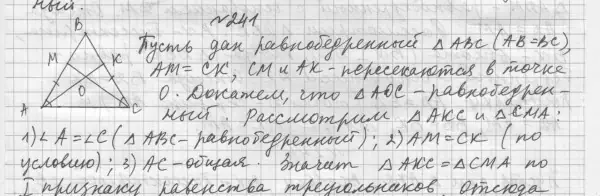 ный.
№241
Пусть дан равнобедренный △ABC (AB=BC),
AM=CK, CM и AK - пересекаются в точке
O. Докажем, что △AOC - равнобедрен-
ный. Рассмотрим △AKC и △CMA:
1) ∠A=∠C (△ABC - равнобедренный); 2) AM=CK (по
условию); 3) AC - общая. Значит △AKC=△CMA по
I признаку равенства треугольников, отсюда
B
M
K
O
A
C